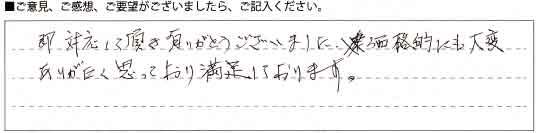 ■ご意見、ご感想、ご要望がございましたら、ご記入ください。
即対応して頂き有りがとうございました、価格的にも大変
ありがたく思っており満足しております。